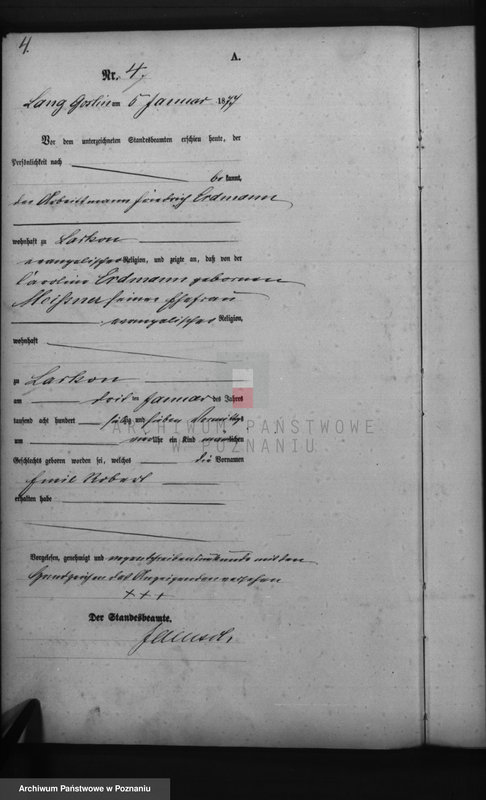 4.
A.
Nr. 4
Lang Goslin am 6 Januar 1877
Vor dem unterzeichneten Standesbeamten erschien heute, der
Persönlichkeit nach
be kannt,
der Arbeitmann Friedrich Erdmann
wohnhaft zu
evangelischer Religion, und zeigte an, daß von der
Caroline Erdmann gebornen
Meißner seiner Ehefrau
evangelischer Religion,
wohnhaft
zu
am drei ten Januar des Jahres
tausend acht hundert siebzig und sieben Vormittags
um vier Uhr ein Kind männlichen
Geschlechts geboren worden sei, welches die Vornamen
Emil Robert
erhalten habe
Vorgelesen, genehmigt und wegen Schreibensunkunde mit den
Handzeichen des Anzeigenden versehen
+++
Der Standesbeamte.
ARCHIWUM PAŃSTWOWE
W POZNANIU
Archiwum Państwowe w Poznaniu